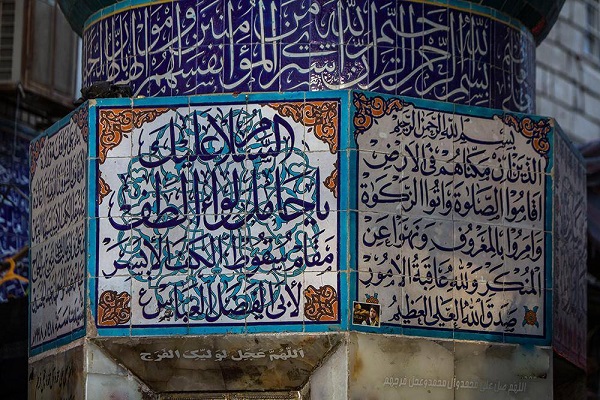 بسم الله الرحمن الرحيم ان الله اشترى من المؤمنين انفسهم واموالهم
السلام عليك
يا حامل لواء الطف
مقام سقوط الكف الايسر
لابي الفضل العباس ع
بسم الله الرحمن الرحيم
الذين ان مكناهم في الارض
اقاموا الصلاوة واتوا الزكوة
وامروا بالمعروف ونهوا عن
المنكر ولله عاقبة الامور
صدق الله العلي العظيم
اللهم عجل لوليك الفرج
اللهم صل على محمد وال محمد وعجل فرجهم